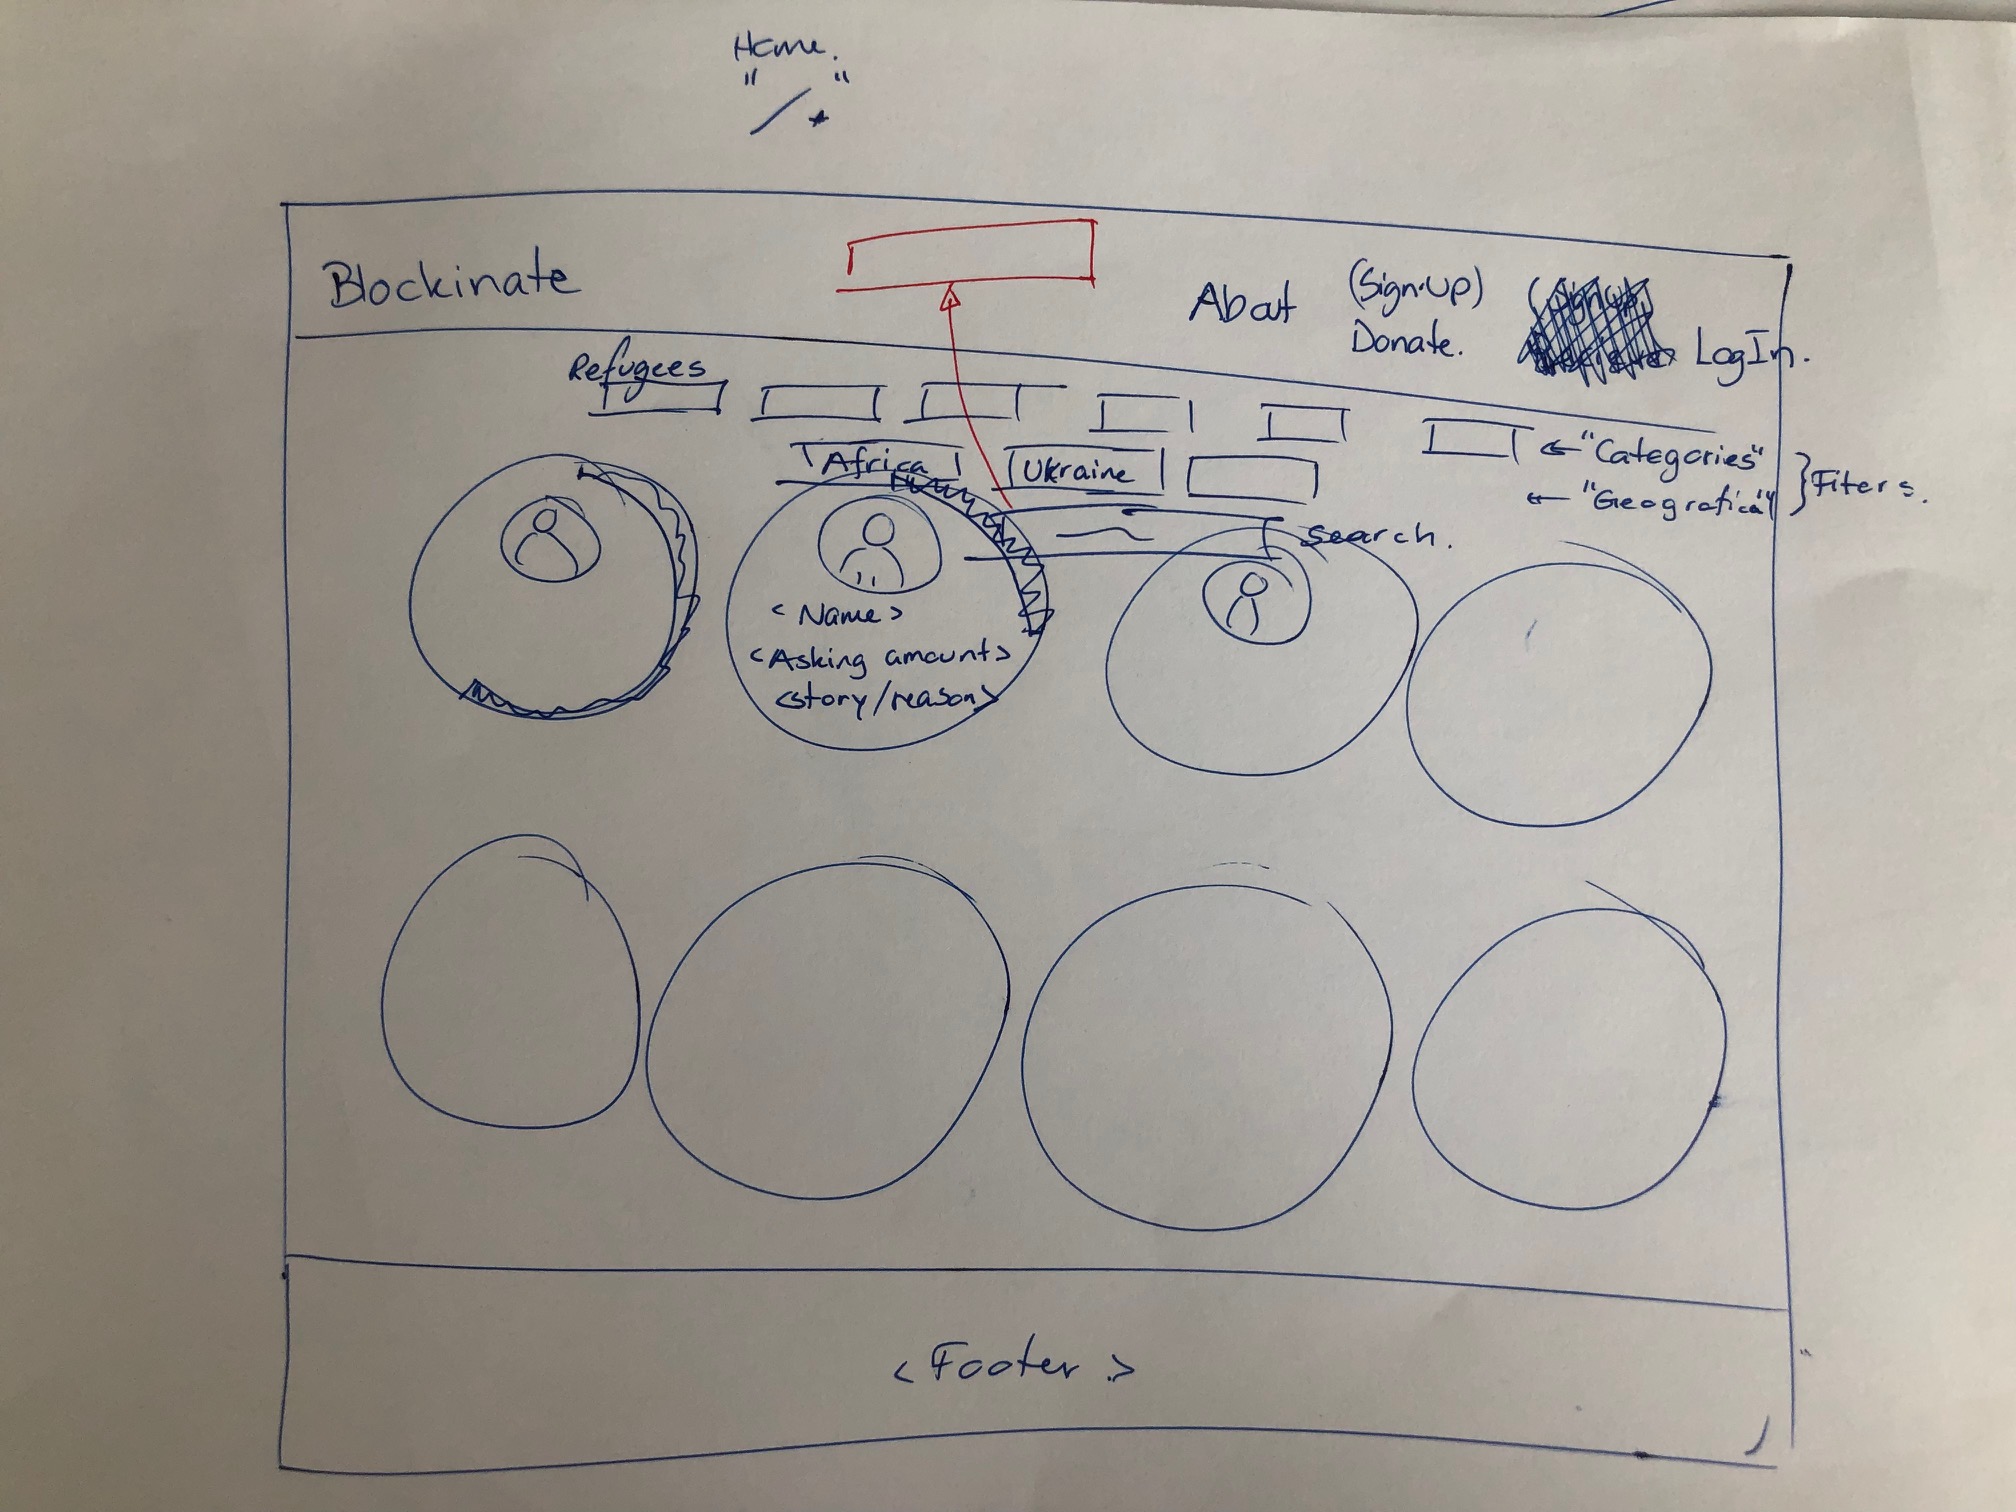 Home.
"/*"
Blockinate
About
(Sign-Up)
Donate.
LogIn.
Refugees
Africa
Ukraine
← "Categories"
← "Geografical"
} Fiters.
search.
< Name >
<Asking amount>
<story/reason>
< Footer >